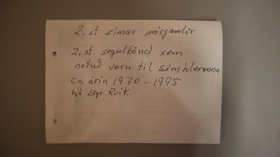 2. st símar misgamlir
2. st segulbönd sem
notuð voru til símhlerana
ca árin 1970 - 1995
hjá Lögr. Rvik